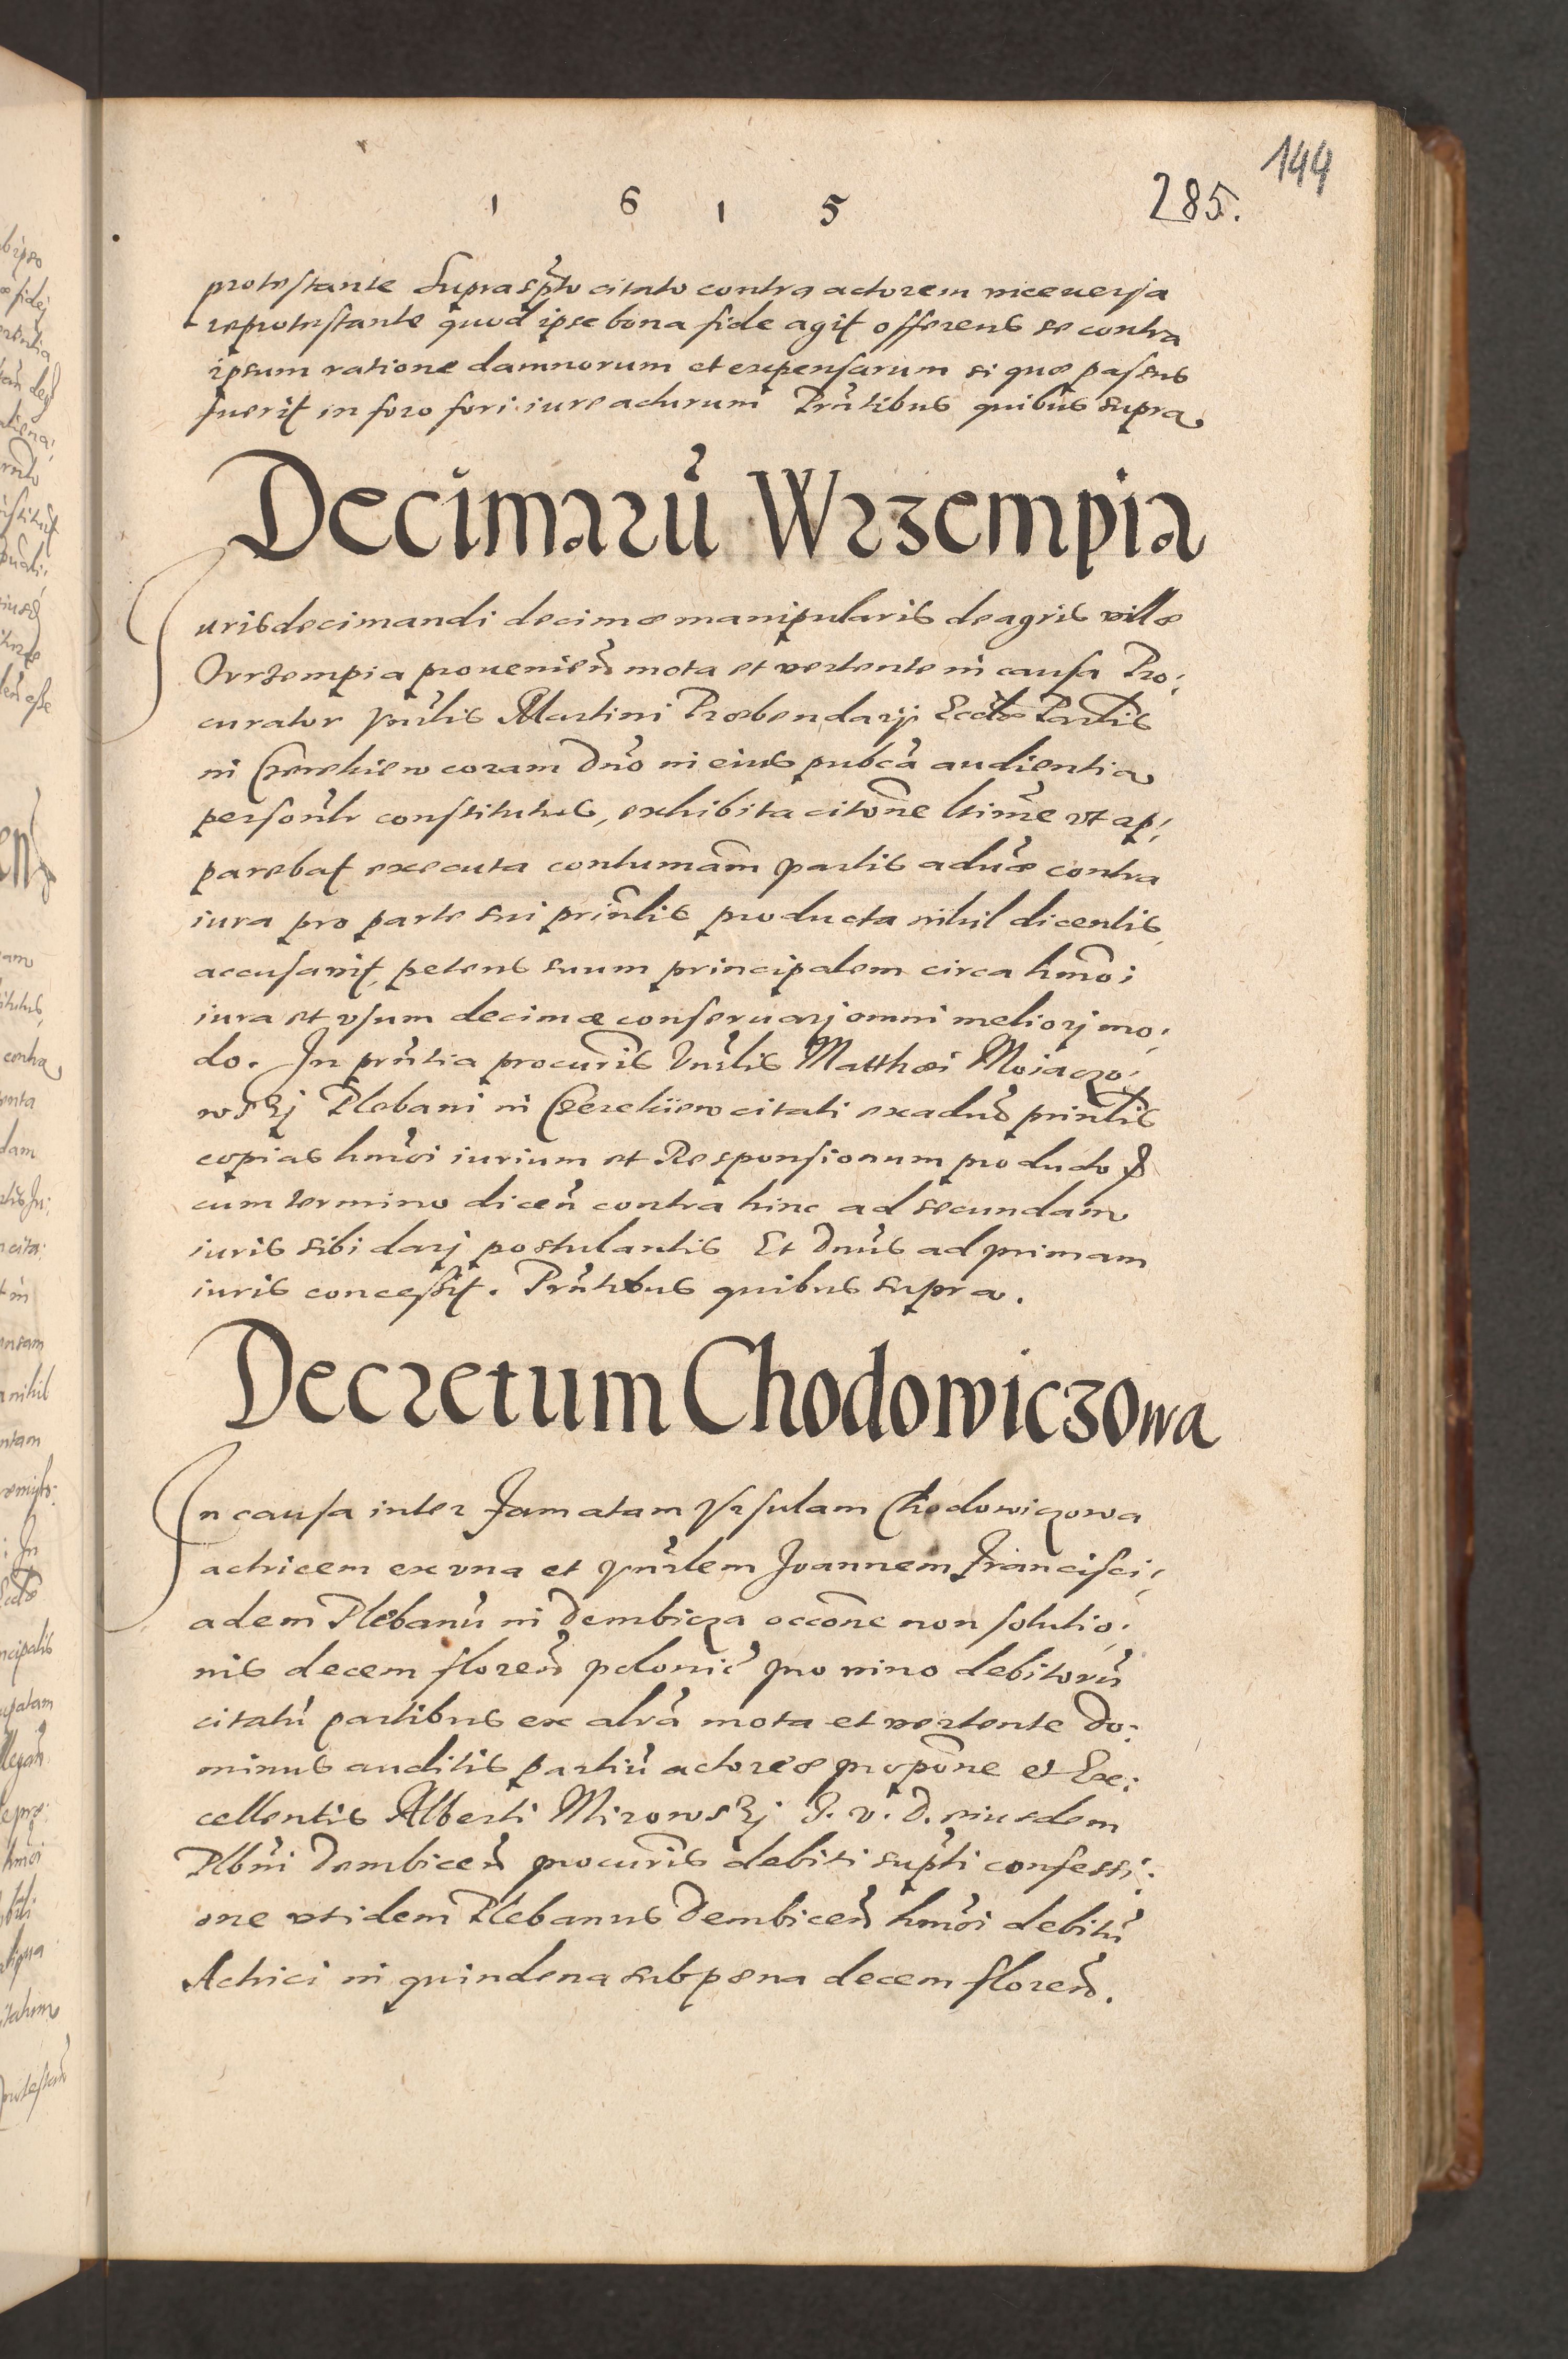 144
1 6 1 5
285.
protestante Suprasp̃to citato contra actorem viceuersa
reprotestante quod ipse bona fide agit offerens se contra
ipsum ratione damnorum et expensarum si quæ passus
fuerit in foro fori iure acturum Prñtibus quibus supra
Decimarũ Wrzempia
Iuris decimandi decimæ manipularis de agris villæ
Wrzempia prouenieñ mota et vertente in causa Pro:
curator Vnrlis Martini Præbendarij Eccłæ
in coram Dño in eius pubca audientia
personlr constitutus, exhibita citõne ltime vt ap:
parebat executa contumãm partis aduæ contra
iura pro parte sui prinlis producta nihil dicentis,
accusauit, petens suum principalem circa hmõi
iura et vsum decimæ conseruarj omni meliorj mo:
do. In prñtia procuris Vnrlis Matthæi Moiaczo:
wskj Plebani in citati ex aduo prinlis
copias hmõi iurium et Responsionum
cum termino diceñ contra hinc ad secundam
iuris sibi darj postulantis Et Dñus ad primam
iuris concessit. Prñtibus quibus supra.
Decretum Chodowiczowa
In causa inter Famatam Vrsulam Chodowiczowa
actricem ex vna et Vnrlem Joannem Francisci:
adem Plebanũ in Dembicza occone non solutio:
nis decem floreñ polonic̃ pro vino debitorũ
citatũ partibus ex altra mota et vertente Do:
minus auditis partiũ actoreæ propõne et Exe:
cellentis Alberti Mirowskj J. V. D. eiusdem
Plbni Dembiceñ procuris debiti sup̃ti confessi:
one vt idem Plebanus Dembiceñ hmõi debitũ
Actrici in quindena sub pœna decem floreñ.